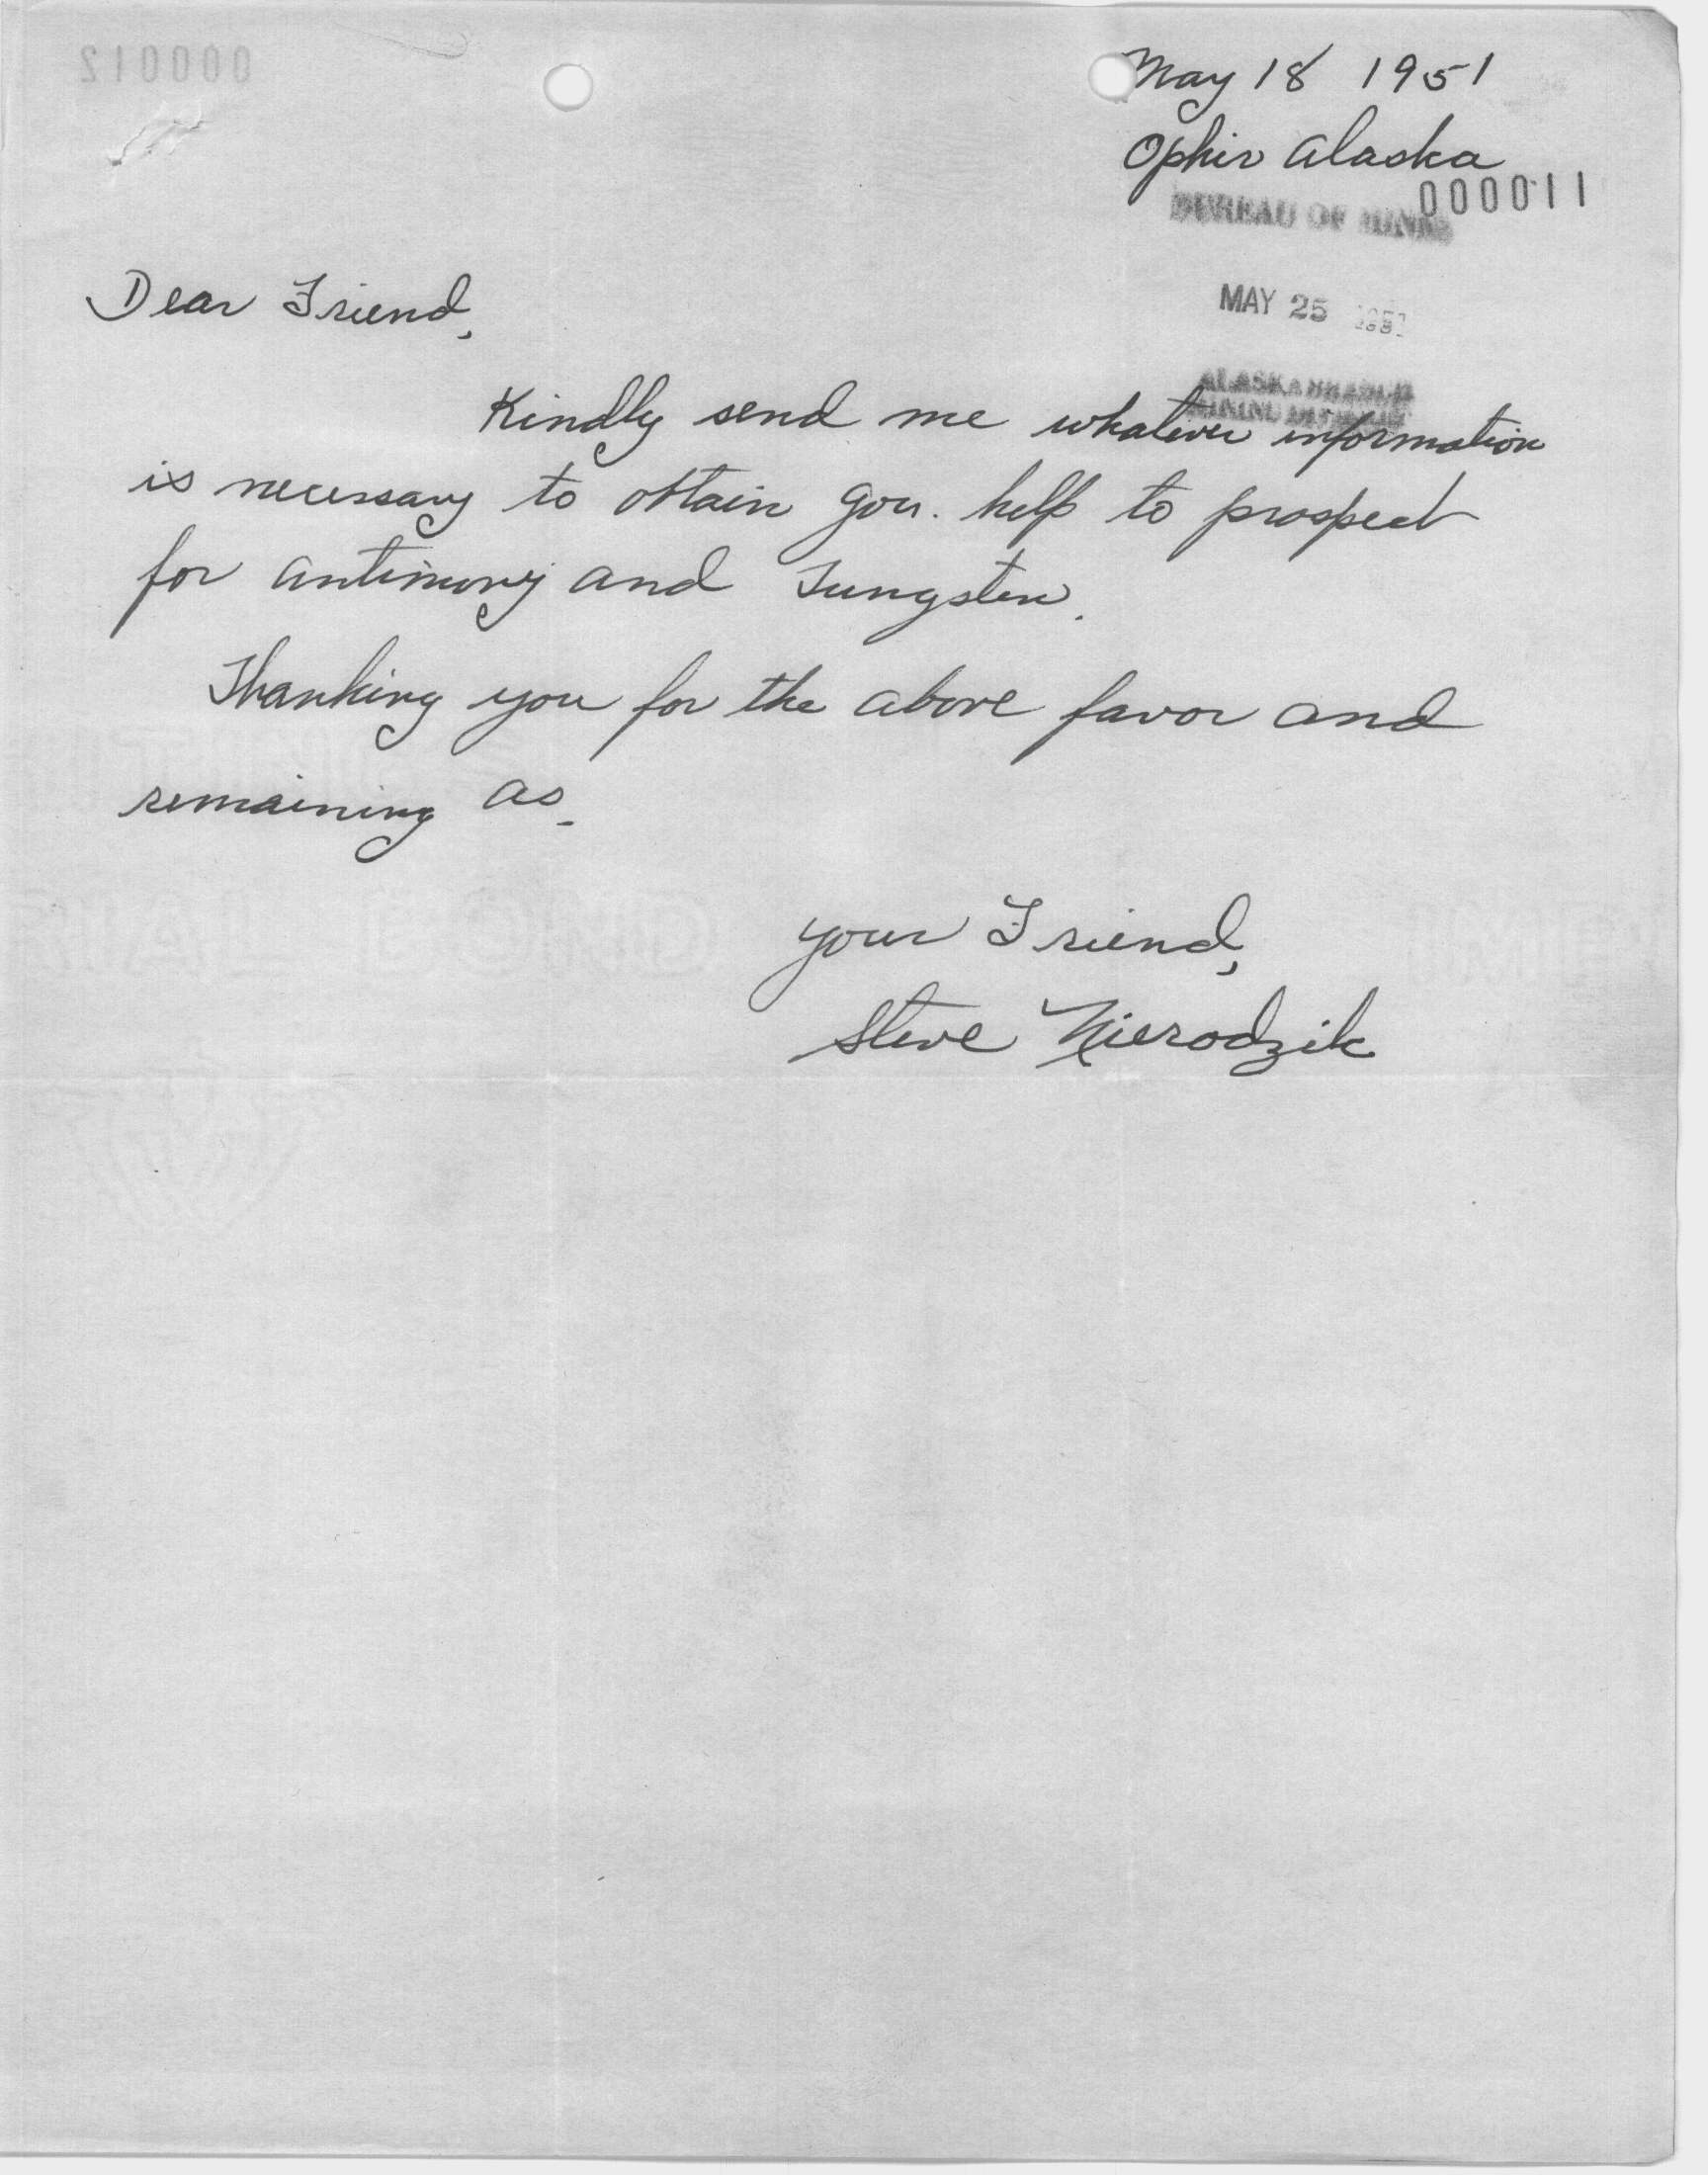 000012
May 18 1951
Ophir Alaska
000011
BUREAU OF MINES
MAY 25 1951
ALASKA BRANCH
MINING DIVISION
Dear Friend,
Kindly send me whatever information
is necessary to obtain gov. help to prospect
for antimony and Tungsten.
Thanking you for the above favor and
remaining as
your Friend,
Steve Nierodzik